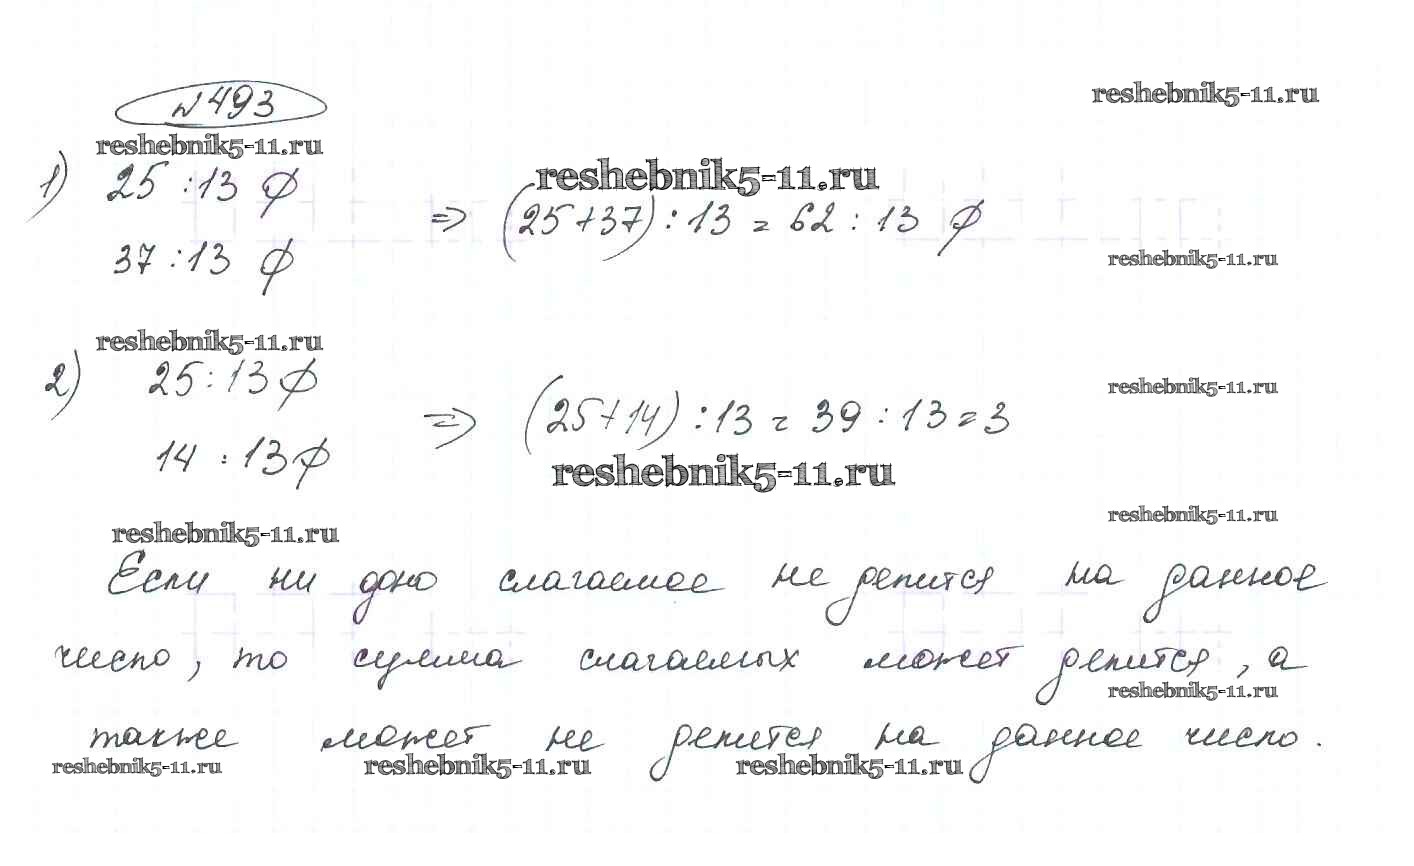 № 493
reshebnik5-11.ru
reshebnik5-11.ru
1) 25 : 13 ∅
reshebnik5-11.ru
⇒ (25+37) : 13 = 62 : 13 ∅
37 : 13 ∅
reshebnik5-11.ru
reshebnik5-11.ru
2) 25 : 13 ∅
reshebnik5-11.ru
⇒ (25+14) : 13 = 39 : 13 = 3
14 : 13 ∅
reshebnik5-11.ru
reshebnik5-11.ru
reshebnik5-11.ru
Если ни одно слагаемое не делится на данное
число, то сумма слагаемых может делится, а
reshebnik5-11.ru
также может не делится на данное число.
reshebnik5-11.ru reshebnik5-11.ru reshebnik5-11.ru